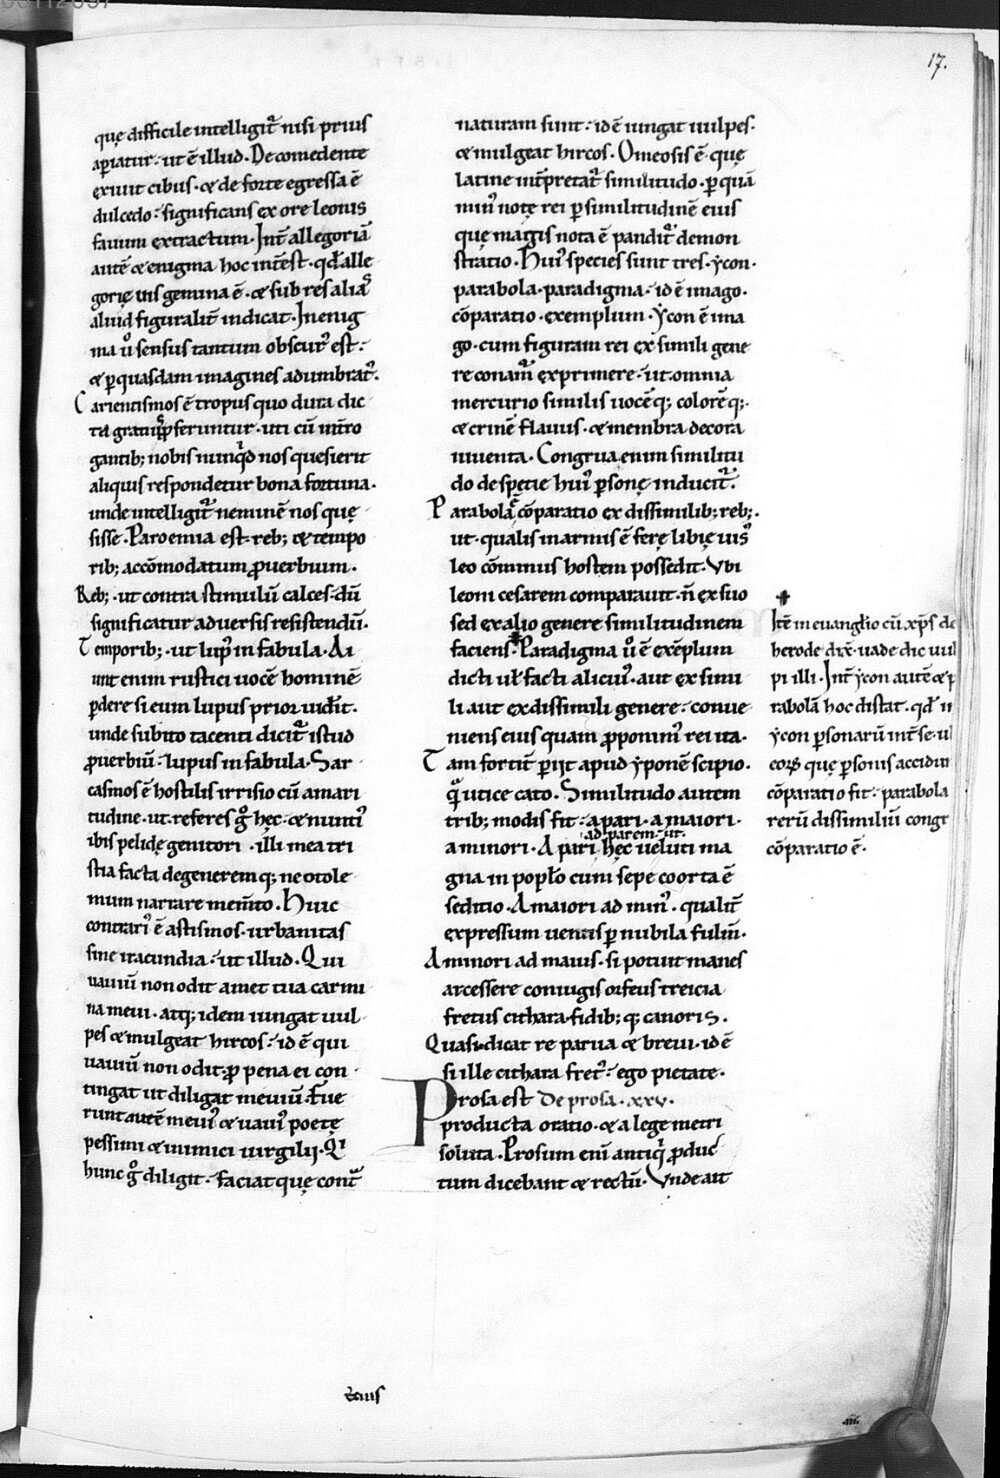 17.
quę difficile intelligit᷑ nisi prius
aꝑiatur. ut ē illud. De comedente
exiuit cibus. & de forte egressa ē
dulcedo. significans ex ore leonis
fauum extractum. Int̄ allegoriā
autē & enigma hoc int̄est. qd̄ alle
gorię uis gemina ē. & sub res alias
aliud figuralit̄ indicat. In enig
ma ů sensus tantum obscur᷒ est.
& ꝑ quasdam imagines adumbrat᷑.
Carientismos ē tropus quo dura dic
ta gratius ꝓferuntur. uti cū int̄ro
gantib; nobis nunqͥd nos quesierit
aliquis respondetur bona fortuna.
unde intelligit᷑ neminē nos quę
sisse. Paroemia est reb; & tempo
rib; accōmodatum ꝓuerbium.
Reb; ut contra stimulū calces. dū
significatur aduersis resistendū.
Temporib; ut lup᷒ in fabula. Ai
unt enim rustici uocē hominē
ꝑdere si eum lupus prior uid̄it.
unde subito tacenti dicit᷑ istud
ꝓuerbiū. lupus in fabula. Sar
casmos ē hostilis irrisio cū amari
tudine. ut referes g̊ hęc. & nunti᷒
ibis pelidę genitori. illi mea tri
stia facta degeneremq; neotole
mum narrare mem̄to. Huic
contrari᷒ ē astismos. urbanitas
sine iracundia. ut illud. Qui
uauiū non odit amet tua carmi
na meui. atq; idem iungat uul
pes & mulgeat hircos. id ē qui
uauiū non odit. ꝓ pena ei con
tingat ut diligat meuiū. Fue
runt autē meui᷒ & uaui᷒ poetę
pessimi & inimici uirgilij. Qͥ
hunc g̊ diligit. faciat quę cont̄
naturam sunt. id ē iungat uulpes.
& mulgeat hircos. Omeosis ē quę
latine int̄pretat᷑ similitudo. ꝑ quā
min᷒ notę rei ꝑ similitudinē eius
quę magis nota ē pandit᷑ demon
stratio. Hui᷒ species sunt tres. ycon.
parabola. paradigma. id ē imago.
cōparatio. exemplum. Ycon ē ima
go. cum figuram rei ex simili gene
re conam᷑ exprimere. ut omnia
mercurio similis uocēq; colorēq;.
& crinē flauus. & membra decora
iuuenta. Congrua enim similitu
do de specie hui᷒ ꝑsonę inducit᷑.
Parabola ē cōparatio ex dissimilib; reb;.
ut. qualis in armis ē ferę libię uis᷒
leo cōminus hostem possedit. Vbi
leoni cesarem comparauit. n̄ ex suo
sed ex alio genere similitudinem
faciens. Paradigma ů ē exēplum
dicti ul̄ facti alicui᷒. aut ex simi
li aut ex dissimili genere. conue
niens eius quam ꝓponim᷒ rei ita.
Tam fortit̄ ꝑiit apud yponē scipio.
qͣ utice cato. Similitudo autem
trib; modis fit. a pari. a maiori.
ad parem. ut.
a minori. A pari hęc ueluti ma
gna in popl̄o cum sepe coorta ē
seditio. A maiori ad min᷒. qualit̄
expressum uentis ꝑ nubila fulm̄.
A minori ad maius. si potuit manes
arcessere coniugis orfeus treicia
fretus cithara fidib; q; canoris.
Quasi dicat re parua & breui. id ē
si ille cithara fret᷒. ego pietate.
Prosa est De prosa. xxv.
producta oratio. & a lege metri
soluta. Prosum eni᷒ antiqͥ ꝓduc
tum dicebant & rectū. Vnde ait
It̄e in euanglio cū xp̄s de
herode dix̄. uade dic uul
pi illi. Int̄ ycon autē & p
rabolā hoc distat. qd̄ in
ycon ꝑsonarū int̄ se. ul
eorꝝ quę ꝑsonis accidun
cōparatio fit. parabola
rerū dissimiliū congr
cōparatio ē.